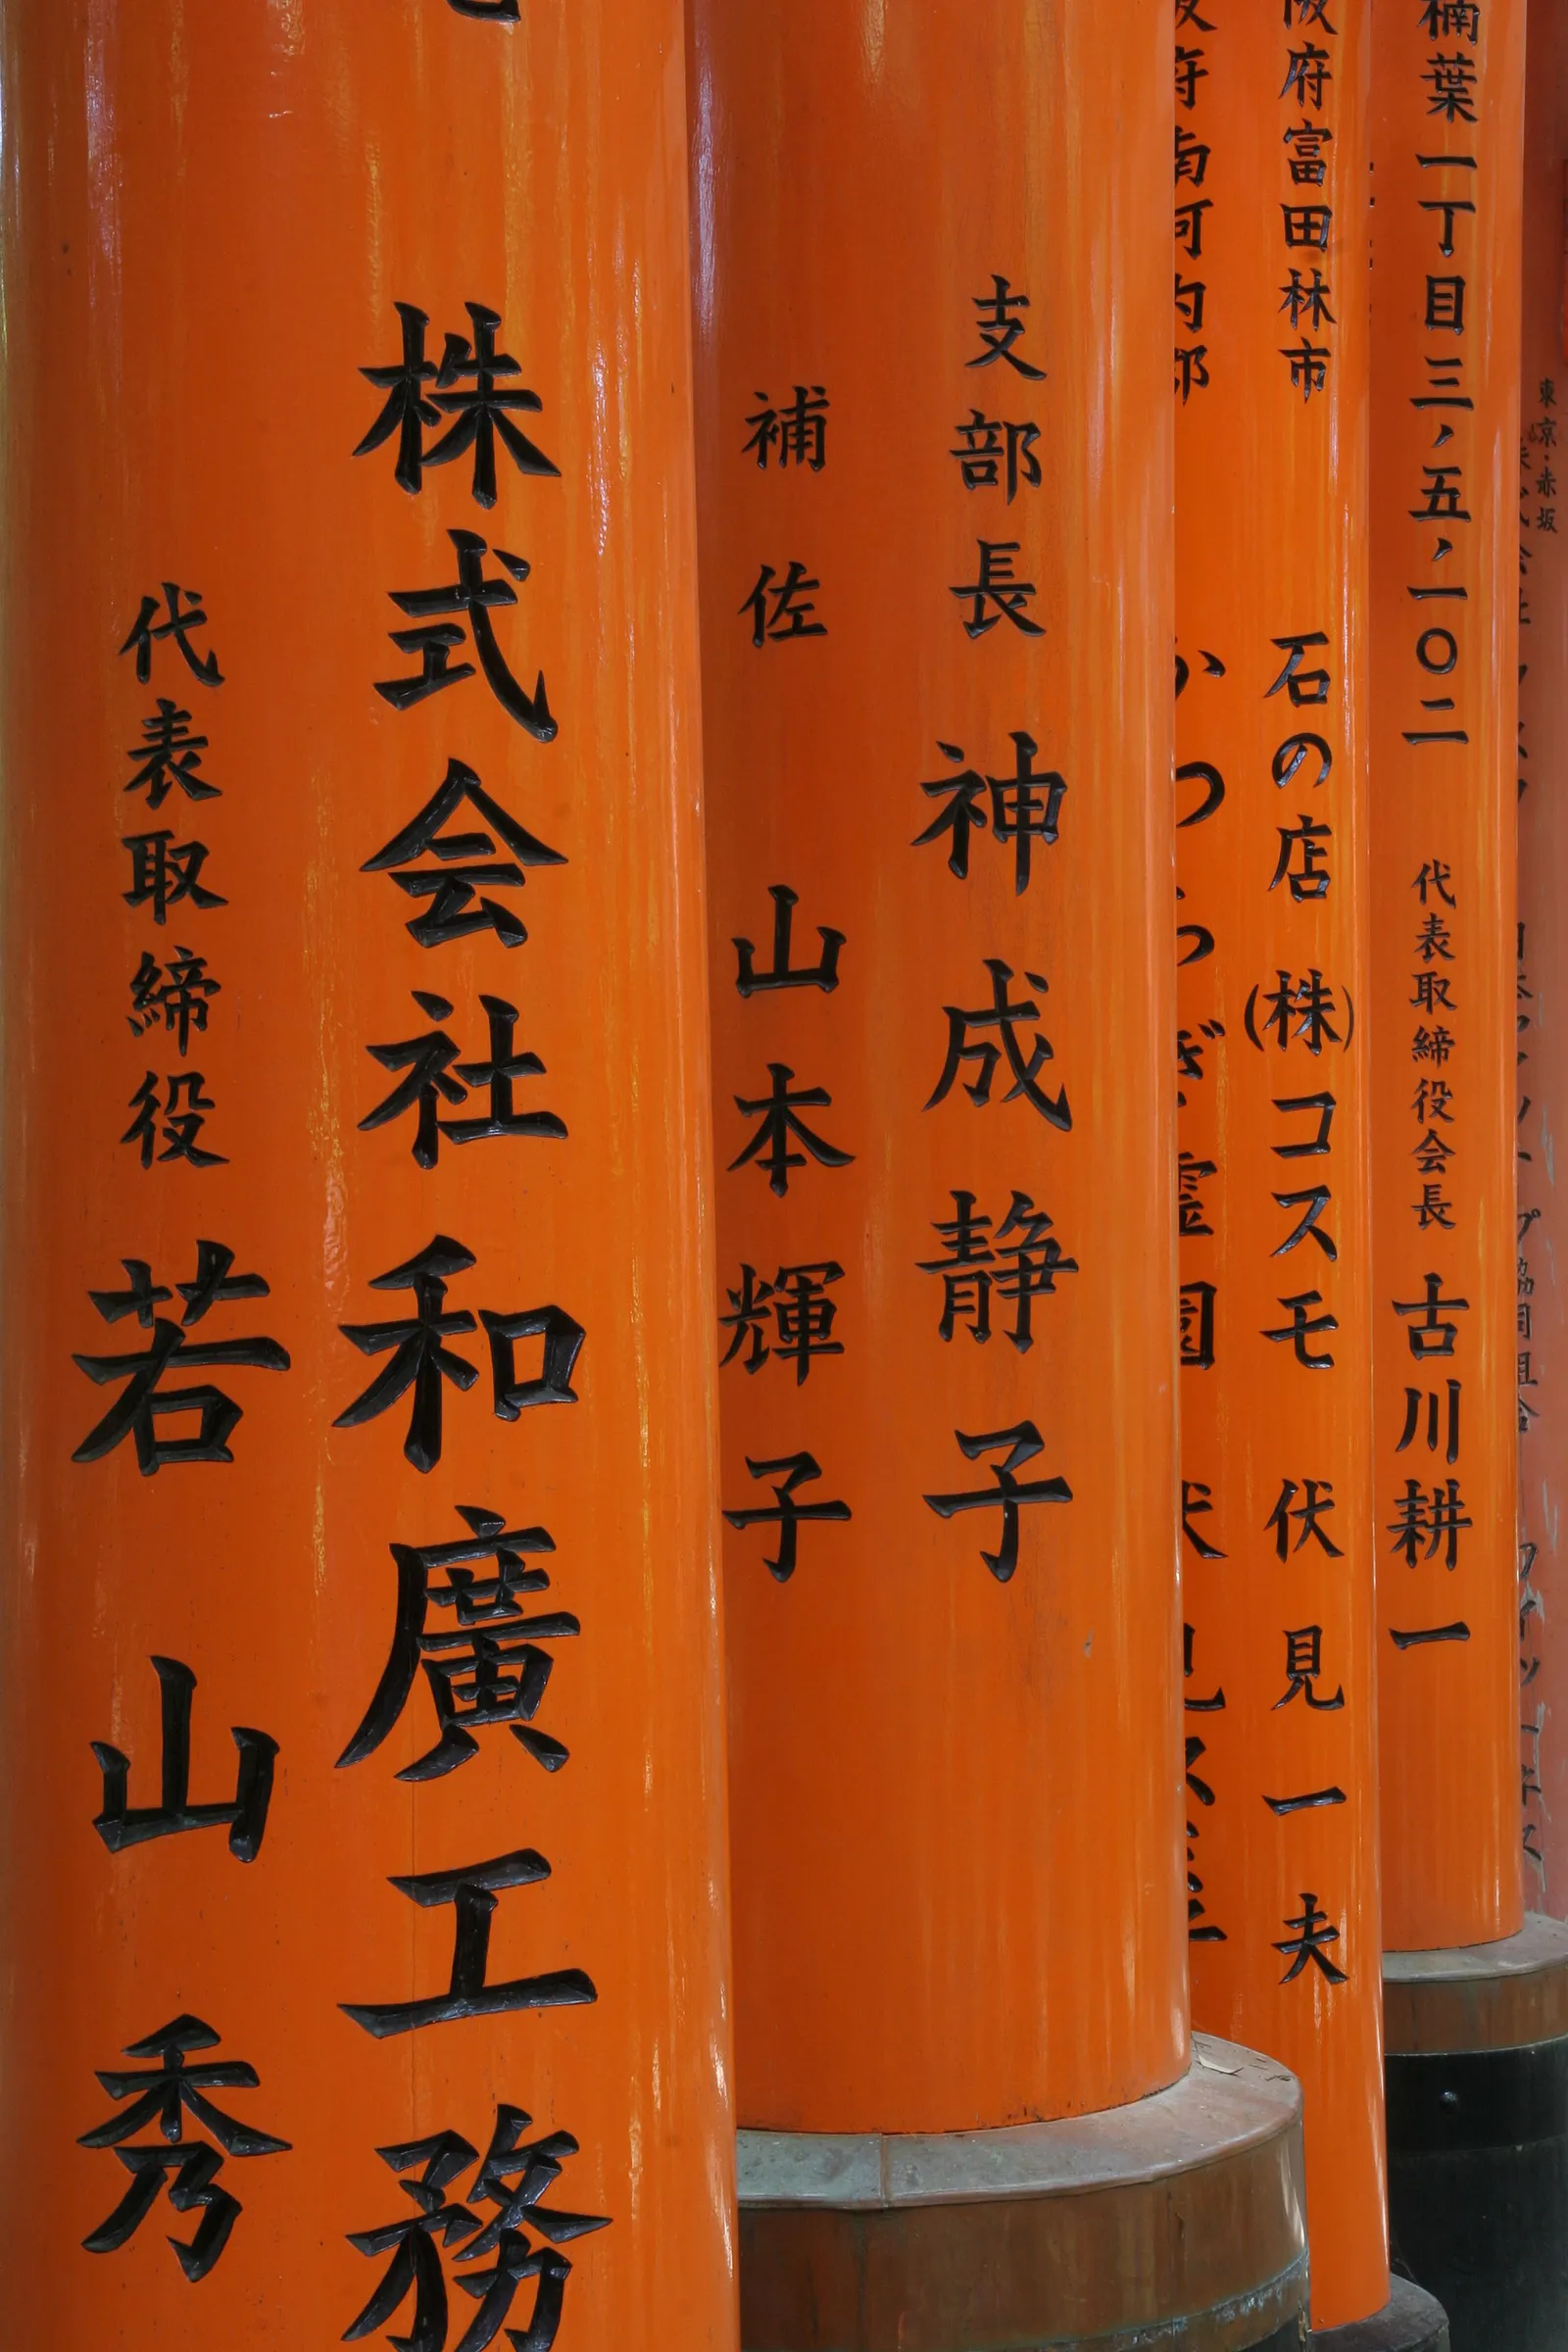 東京・赤坂
楠葉一丁目三、五、一〇二 代表取締役会長 古川耕一
阪府富田林市 石の店 (株)コスモ 伏見一夫
府南河内郡
支部長 神成静子
補佐 山本輝子
株式会社和廣工務
代表取締役 若山秀